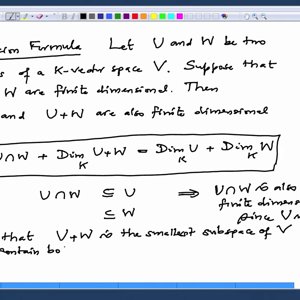 Formula Let U and W be two
of a K-vector space V. Suppose that
W are finite dimensional. Then
and U+W are also finite dimensional
U∩W + Dim_K U+W = Dim_K U + Dim_K W
U∩W ⊆ U ⇒ U∩W is also
⊆ W finite dimens
since U
that U+W is the smallest subspace of V
contain bo